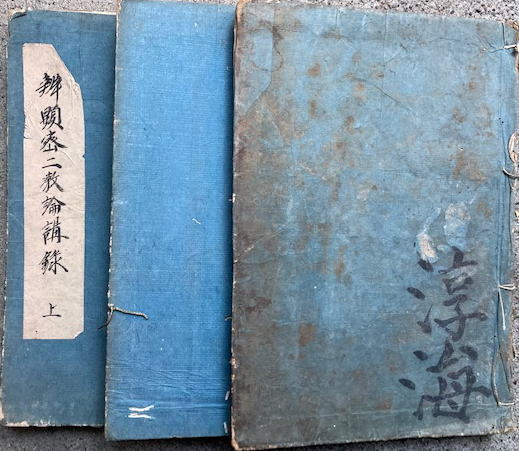 辨顕密二教論講録 上
淳海